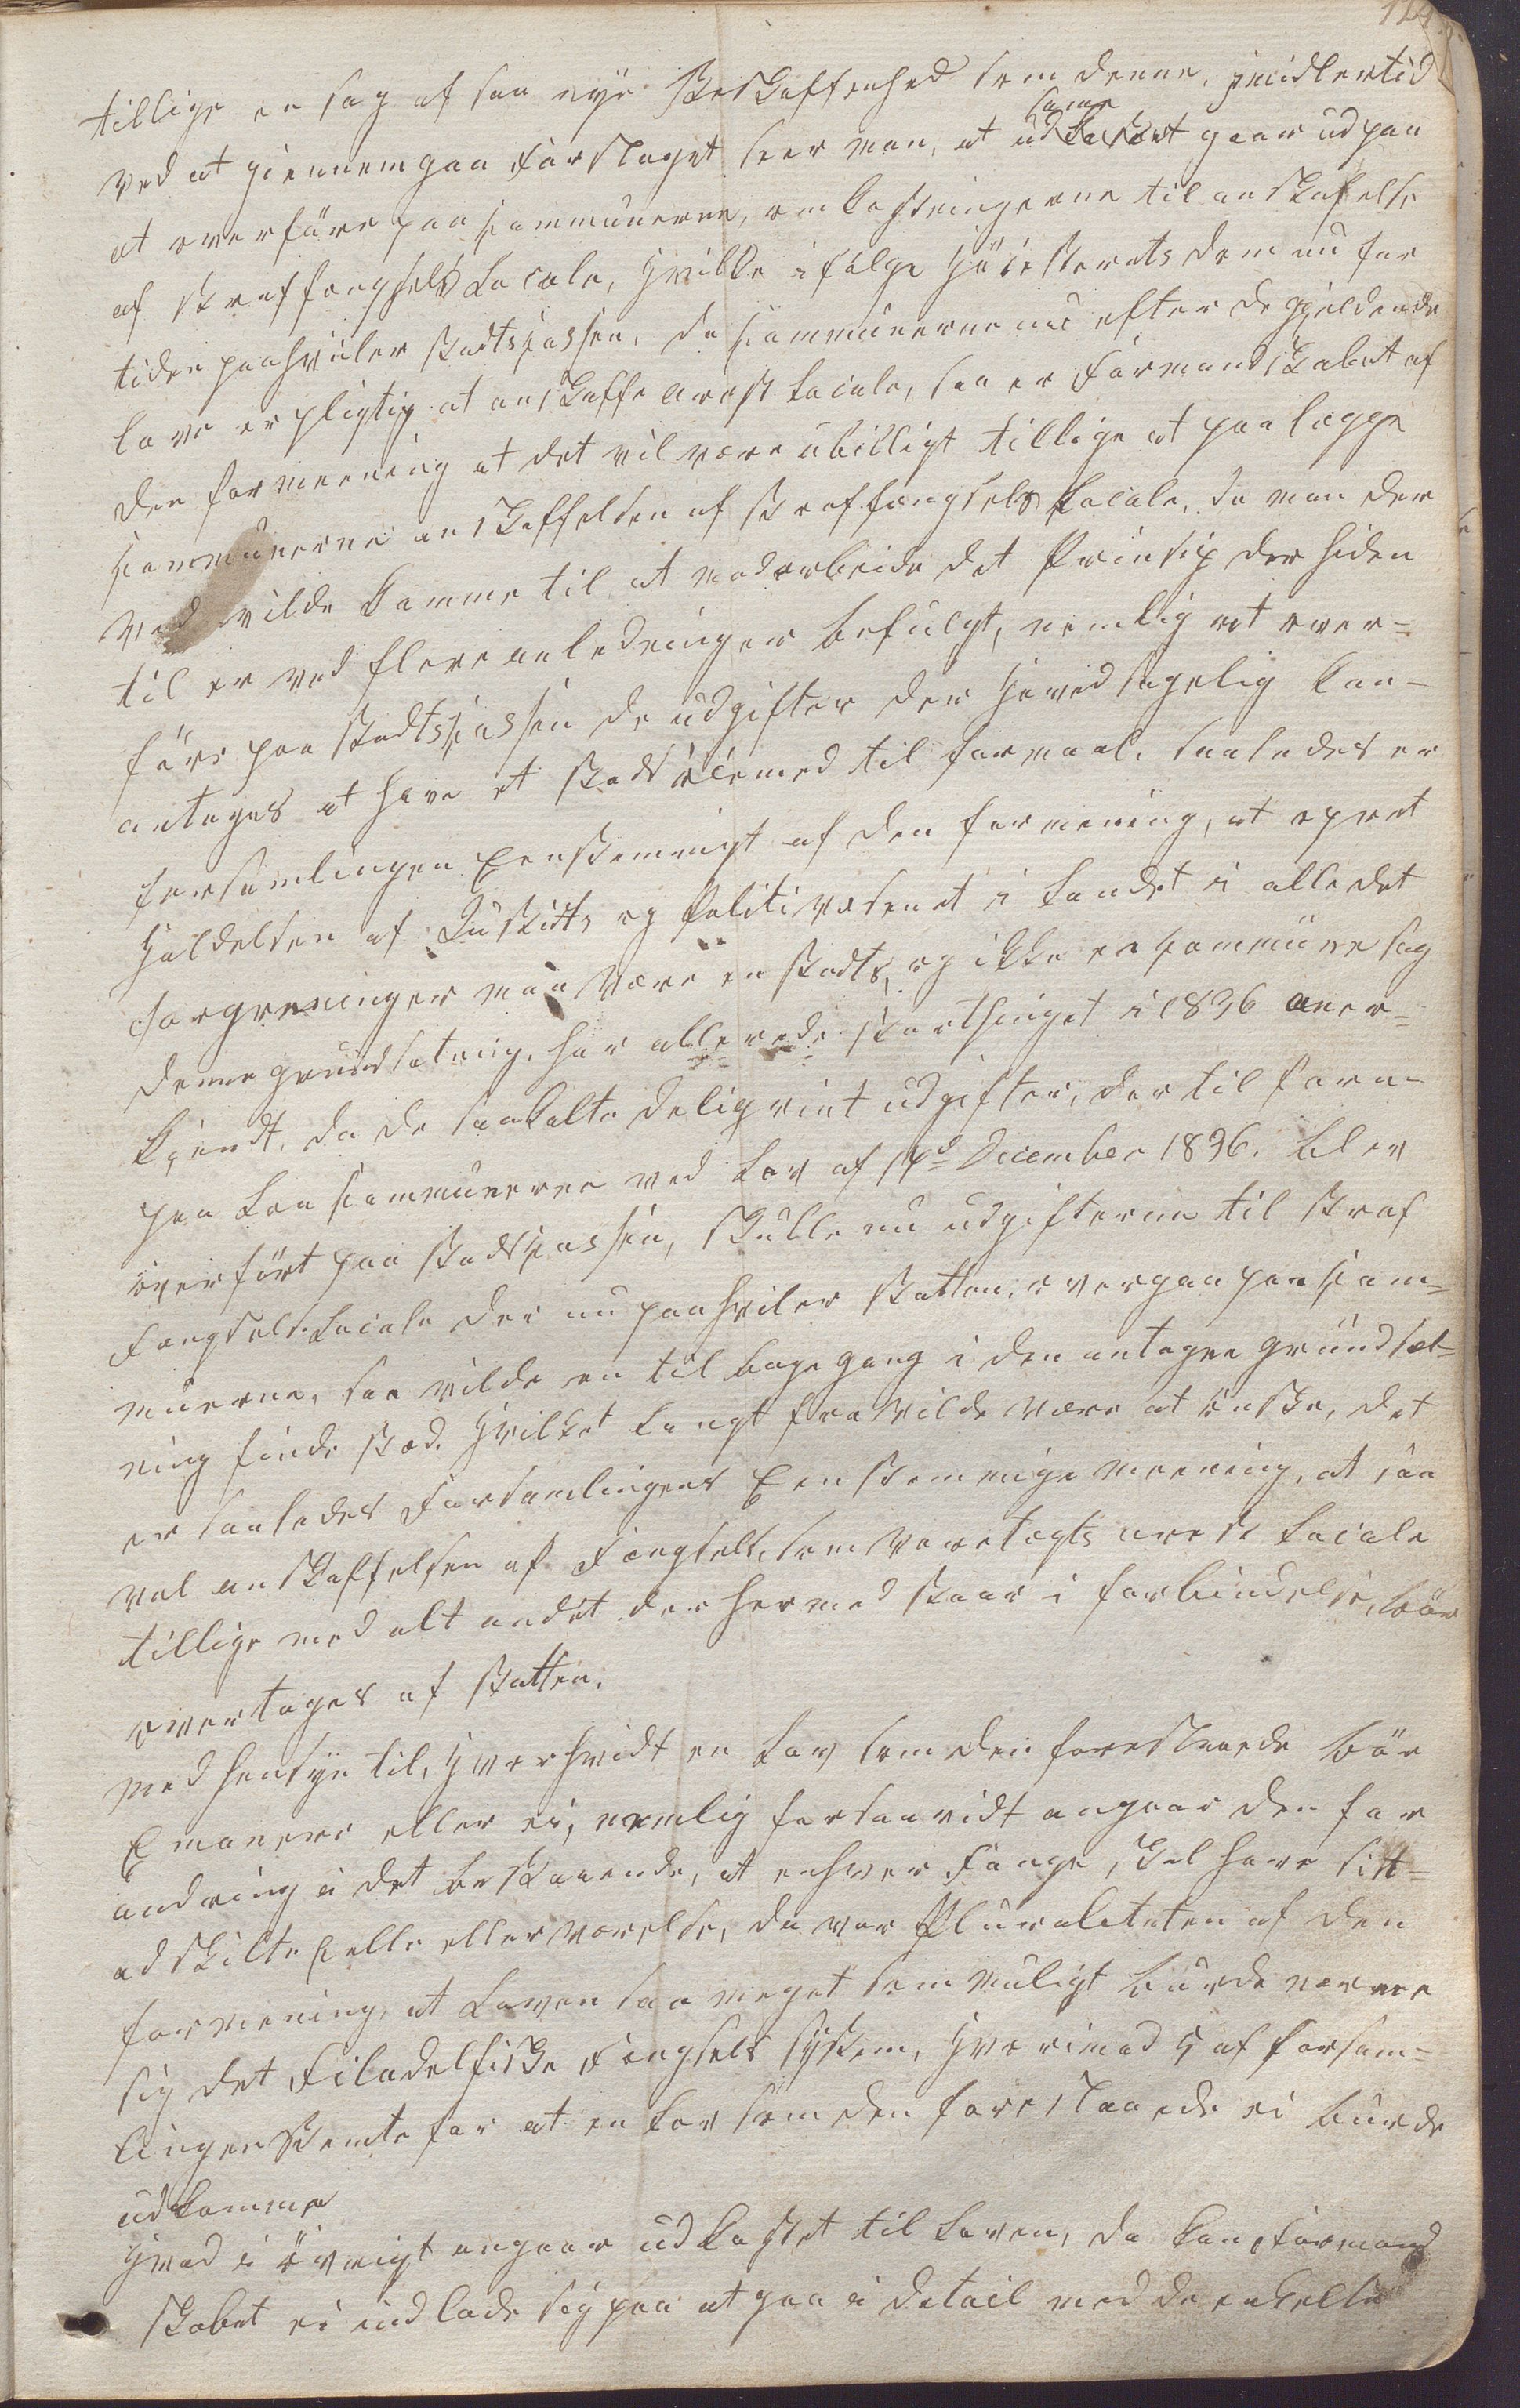 124
tillige en sag af saa nye Beskaffenhed som denne, imidlertid
ved at giennemgaa Forslaget seer man, at udkastet gaar ud paa
at overføre paa Communerne, omkostningerne til anskafelse
af Straffængsels Locale, hvilke ifølge Høiesterets dom nu for
tiden paahviler Stadtscassen, da Communerne nu efter de gjeldende
love er pligtig at anskaffe Arest Locale, saa er Formandskabet af
den formeening at det vil være ubilligt tillige at paalægge
Communerne anskaffelsen af Straffængsels Locale, da man der
ved vilde komme til at modarbeide det Prinsip der hiden
til er ved flere anledninger befulgt, nemlig at over-
føre paa Stadtscassen de udgifter der hovedsagelig kan-
antages at have et Stads øiemed til formaal. saaledes er
forsamlingen Eenstemmigt af den formening, at opret
holdelsen af Justits og Politivæsenet i Landet i alle det
forgreninger maa være en Stadts, og ikke en Commune sag
denne grundsætning, har allerede Storthinget i 1836 aner-
kjendt, da de saakalte Delignint udgifter, der til forn
paa Laa Communerne ved Lov af 17d December 1836. blev
overført paa Stadscassen, skulle nu udgifterne til Straf
Fængsels Locale der nu paahviler Statten, overgaa paa Com-
muerne, saa vilde en tilbagegang i den antagne grundsæt-
ning finde sted. hvilket langt fra vilde være at ønske, det
er saaledes Forsamlingens Eenstemmige meening, at saa
vel anskaffelsen af Fængsels, som Varetægts arest Locale
tillige med alt andet der hermed staar i forbindelse, bør
overtages af Statten.
med hensyn til, hvorhvidt en Lov som den foreslaaede bør
Emanere eller ei, nemlig forsaavidt angaar den for
andring i det bestaaende, at enhver Fange skal have sit-
adskilte Celle eller værelse, da var Pluraliteten af den
formening, at Loven saa meget som muligt burde nærme
sig det Filadelfiske Fængsels System, hvorimod 4 af forsam-
lingen stemte for at en Lov som den foreslaaede ei burde
udkomme
hvad i øvrigt angaar udkastet til Loven, da kan Formand
skabet ei indlade sig paa at gaa i Detail med de enkelte